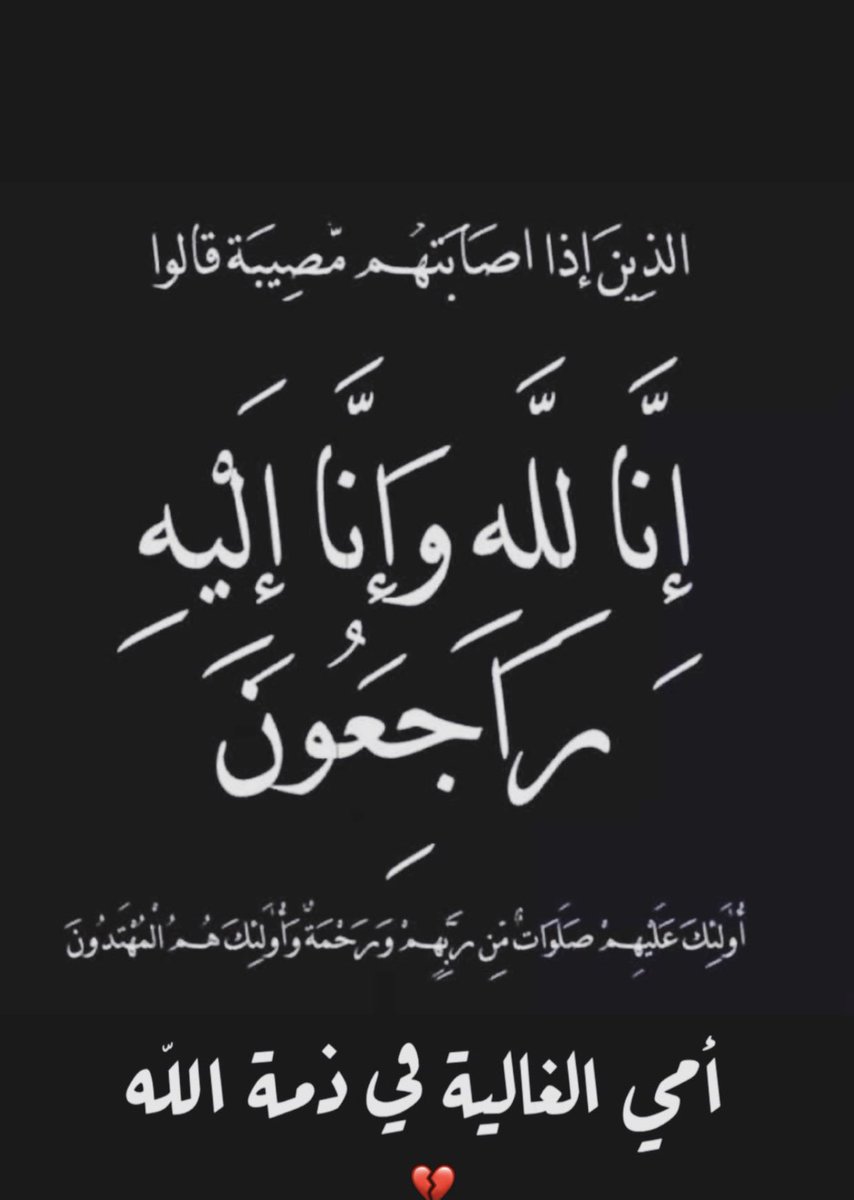 الذِينَ إِذَا اصَابَتهُم مّصِيبَة قالوا
إِنَّا للَّه وَإِنَّا إِلَيْهِ
رَاجِعُونَ
أُولَئِكَ عَلَيْهِمْ صَلَوَاتٌ مِّن رَّبِّهِمْ وَرَحْمَةٌ وَأُولَئِكَ هُمُ الْمُهْتَدُونَ
أمي الغالية في ذمة اللّه
💔